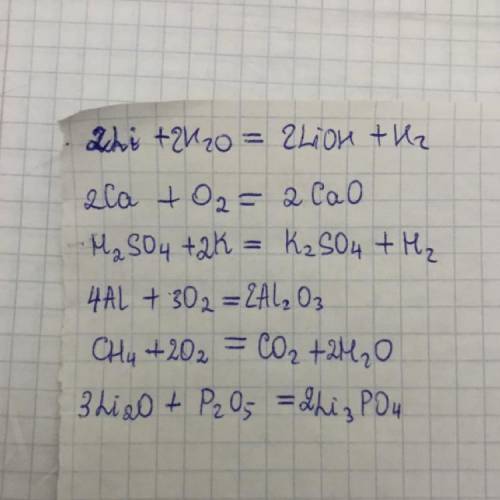 2Li + 2H₂O = 2LiOH + H₂
2Ca + O₂ = 2CaO
H₂SO₄ + 2K = K₂SO₄ + H₂
4Al + 3O₂ = 2Al₂O₃
CH₄ + 2O₂ = CO₂ + 2H₂O
3Li₂O + P₂O₅ = 2Li₃PO₄